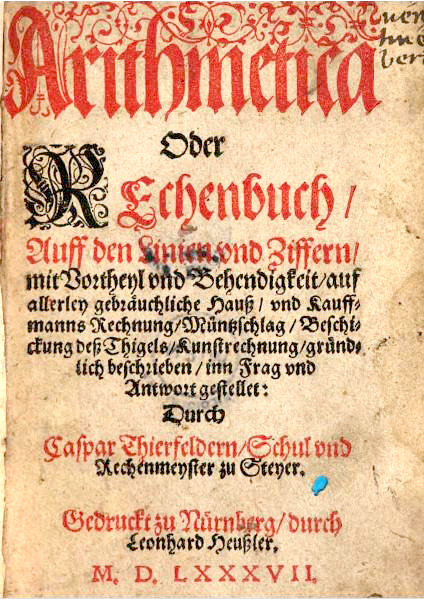 Arithmetica
Oder
REchenbuch /
Auff den Linien vnd Ziffern /
mit Vortheyl vnd Behendigkeit / auf
allerley gebräuchliche Hauß / vnd Kauff-
manns Rechnung / Müntzschlag / Beschi-
ckung deß Thigels / Kunstrechnung / gründ-
lich beschrieben / inn Frag vnd
Antwort gestellet:
Durch
Caspar Thierfeldern / Schul vnd
Rechenmeyster zu Steyer.
Gedruckt zu Nürnberg / durch
Leonhard Heußler.
M. D. LXXXVII.